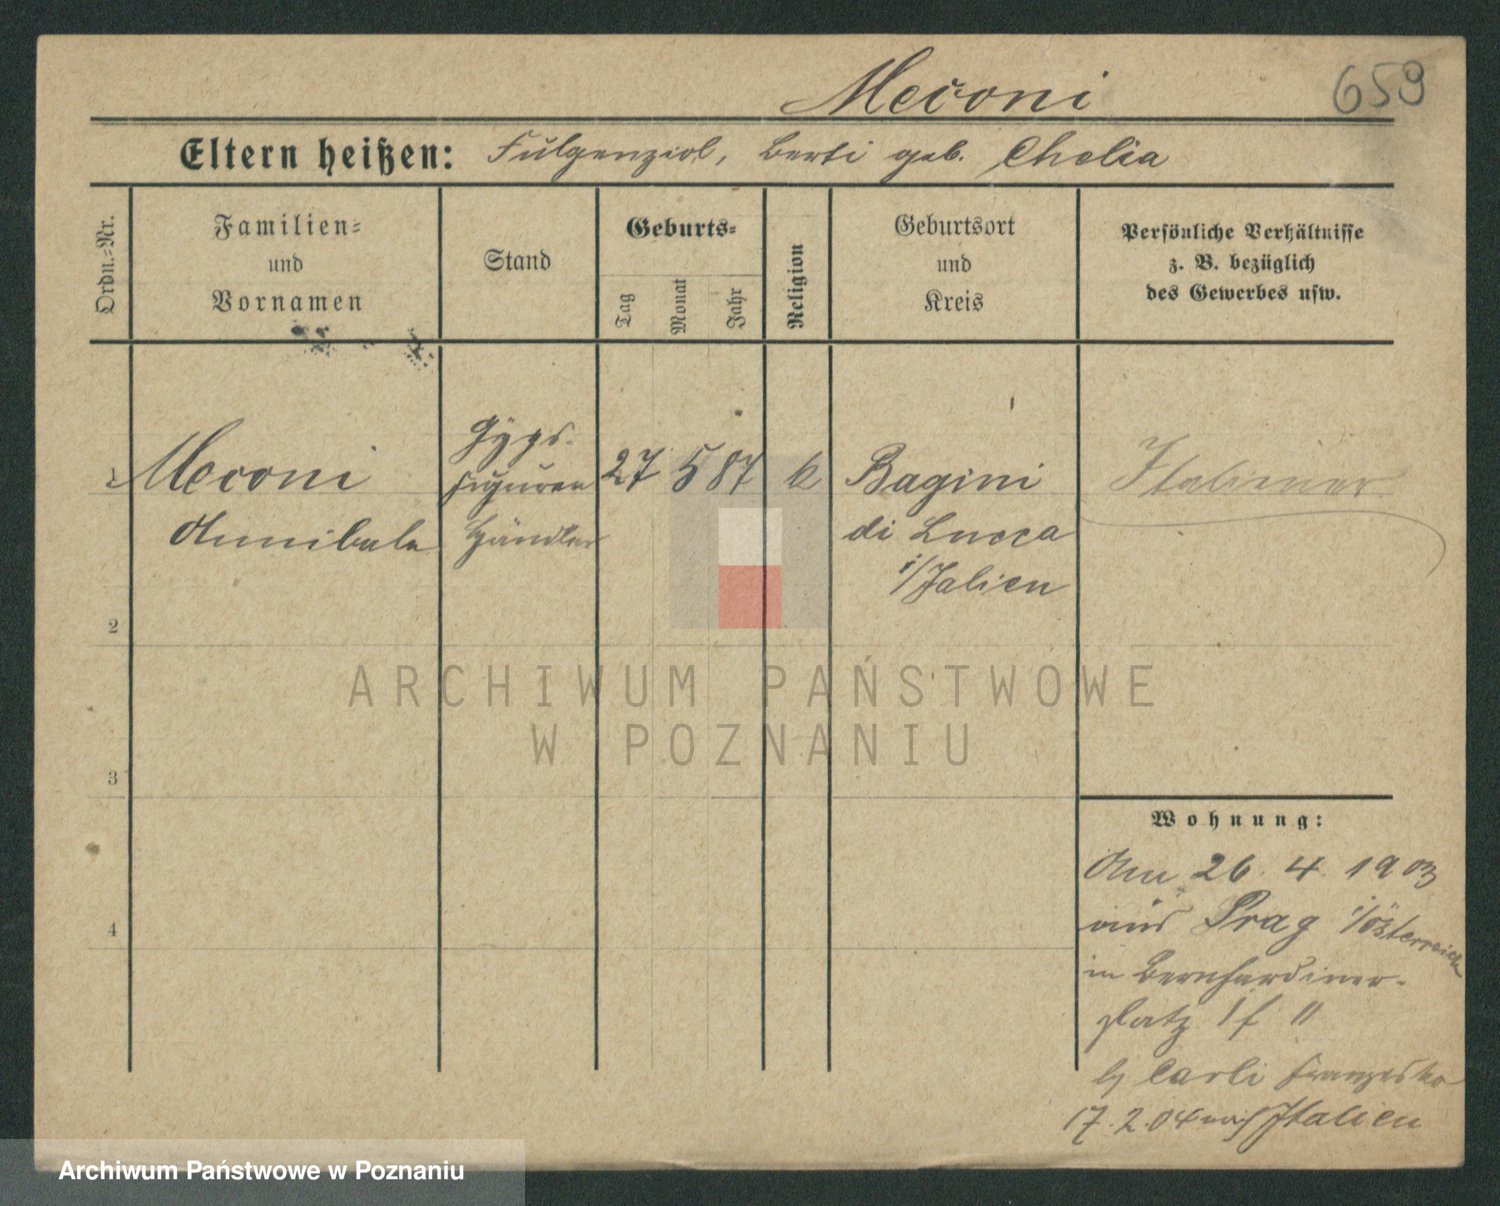 Meconi
659
Eltern heißen: Fulgenziol, Berti geb. Chelia
Ordn.=Nr.
Familien=
und
Vornamen
Stand
Geburts=
Tag
Monat
Jahr
Religion
Geburtsort
und
Kreis
Persönliche Verhältnisse
z. B. bezüglich
des Gewerbes usw.
1 Meconi
Annibale
Gyps-
figuren
Händler
27 5 87 k
Bagini
di Lucca
i/Italien
Italiener
2
3
4
Wohnung:
Am 26. 4. 1903
aus Prag i/Österreich
in Bernhardiner-
platz 1 f II
b/ Carli Franzisko
17.2.04 nach Italien
ARCHIWUM PAŃSTWOWE
W POZNANIU
Archiwum Państwowe w Poznaniu